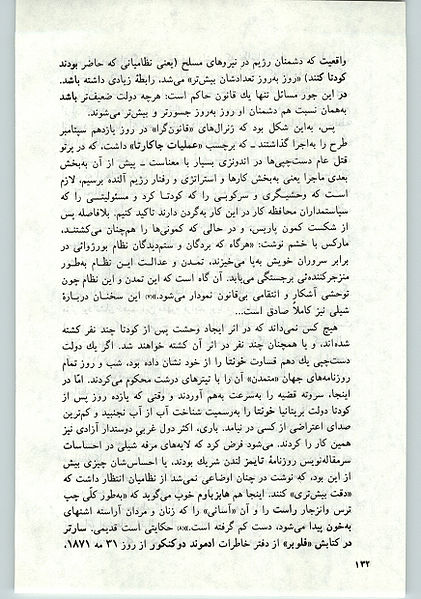 واقعیت که دشمنان رژیم در نیروهای مسلح (یعنی نظامیانی که حاضر بودند
کودتا کنند) «روز به‌روز تعدادشان بیش‌تر» می‌شد، رابطهٔ زیادی داشته باشد.
در این جور مسائل تنها یك قانون حاکم است: هرچه دولت ضعیف‌تر باشد
به‌همان نسبت هم دشمنان او روز به‌روز جسورتر و بیش‌تر می‌شوند.
پس، به‌این شکل بود که ژنرال‌های «قانون‌گرا» در روز یازدهم سپتامبر
طرح را به‌اجرا گذاشتند ـ که برچسب «عملیات جاکارتا» داشت، که در پرتو
قتل عام دست‌چپی‌ها در اندونزی بسیار با معناست ـ پیش از آن به‌بخش
بعدی ماجرا یعنی به‌بخش کارها و استراتژی و رفتار رژیم آلنده برسیم، لازم
است که وحشیگری و سرکوبی را که کودتا کرد و مسئولیتی را که
سیاستمداران محافظه کار در این کار به‌گردن دارند تاکید کنیم. بلافاصله پس
از شکست کمون پاریس، و در حالی که کمونی‌ها را هم‌چنان می‌کشتند،
مارکس با خشم نوشت: «هرگاه که بردگان و ستم‌دیدگان نظام بورژوائی در
برابر سروران خویش به‌پا می‌خیزند، تمدن و عدالت این نظام به‌طور
منزجرکننده‌ئی برجستگی می‌یابد. آن گاه است که این تمدن و این نظام چون
توحشی آشکار و انتقامی بی‌قانون نمودار می‌شود.» این سخنان دربارهٔ
شیلی نیز کاملاً صادق است...
هیچ کس نمی‌داند که در اثر ایجاد وحشت پس از کودتا چند نفر کشته
شده‌اند، و یا همچنان چند نفر در اثر آن کشته خواهند شد. اگر یك دولت
دست‌چپی یك دهم قساوت خونتا را از خود نشان داده بود، شب و روز تمام
روزنامه‌های جهان «متمدن» آن را با تیترهای درشت محکوم می‌کردند. امّا در
اینجا، سروته قضیه را به‌سرعت به‌هم آوردند و وقتی که یازده روز پس از
کودتا دولت بریتانیا خونتا را به‌رسمیت شناخت آب از آب نجنبید و کم‌ترین
صدای اعتراضی از کسی در نیامد. باری، اکثر دول غربیِ دوستدار آزادی نیز
همین کار را کردند. می‌شود فرض کرد که لایه‌های مرفه شیلی در احساسات
سرمقاله‌نویس روزنامهٔ تایمز لندن شریك بودند، یا احساس‌شان چیزی بیش
از این بود، که نوشت در چنان اوضاعی نمی‌شد از نظامیان انتظار داشت که
«دقت بیش‌تری» کنند. اینجا هم هابزباوم خوب می‌گوید که «به‌طور کلّی چپ
ترس وانزجار راست را و آن «آسانی» را که زنان و مردان آراسته اشتهای
به‌خون پیدا می‌شود، دست کم گرفته است.» حکایتی است قدیمی. سارتر
در کتابش «فلوبر» از دفتر خاطرات ادموند دوگنکور از روز ۳۱ مه ۱۸۷۱،
۱۳۲